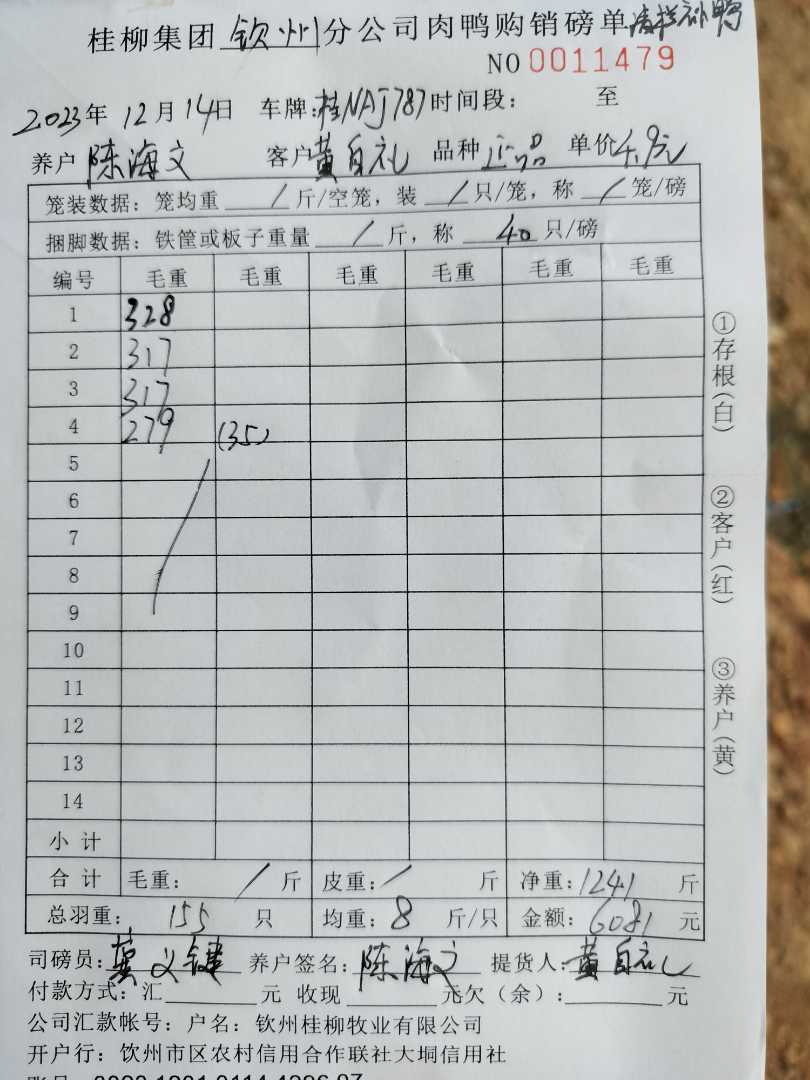 桂柳集团 钦州 分公司肉鸭购销磅单 清栏补鸭
NO 0011479
2023年 12月 14日 车牌:桂NAJ787 时间段: 至
养户 陈海文 客户 黄自礼 品种 正品 单价 4.9元
笼装数据: 笼均重 / 斤/空笼, 装 / 只/笼, 称 / 笼/磅
捆脚数据: 铁筐或板子重量 / 斤, 称 40 只/磅
编号 毛重 毛重 毛重 毛重 毛重 毛重
1 328
2 317
3 317
4 279 (35)
5
6
7
8
9
10
11
12
13
14
小 计
合 计 毛重: / 斤 皮重: / 斤 净重: 1241 斤
总羽重: 155 只 均重: 8 斤/只 金额: 6081 元
司磅员: 龚义键 养户签名: 陈海文 提货人: 黄自礼
付款方式: 汇 元 收现 元欠(余): 元
公司汇款帐号: 户名: 钦州桂柳牧业有限公司
开户行: 饮州市区农村信用合作联社大垌信用社
①存根(白)
②客户(红)
③养户(黄)